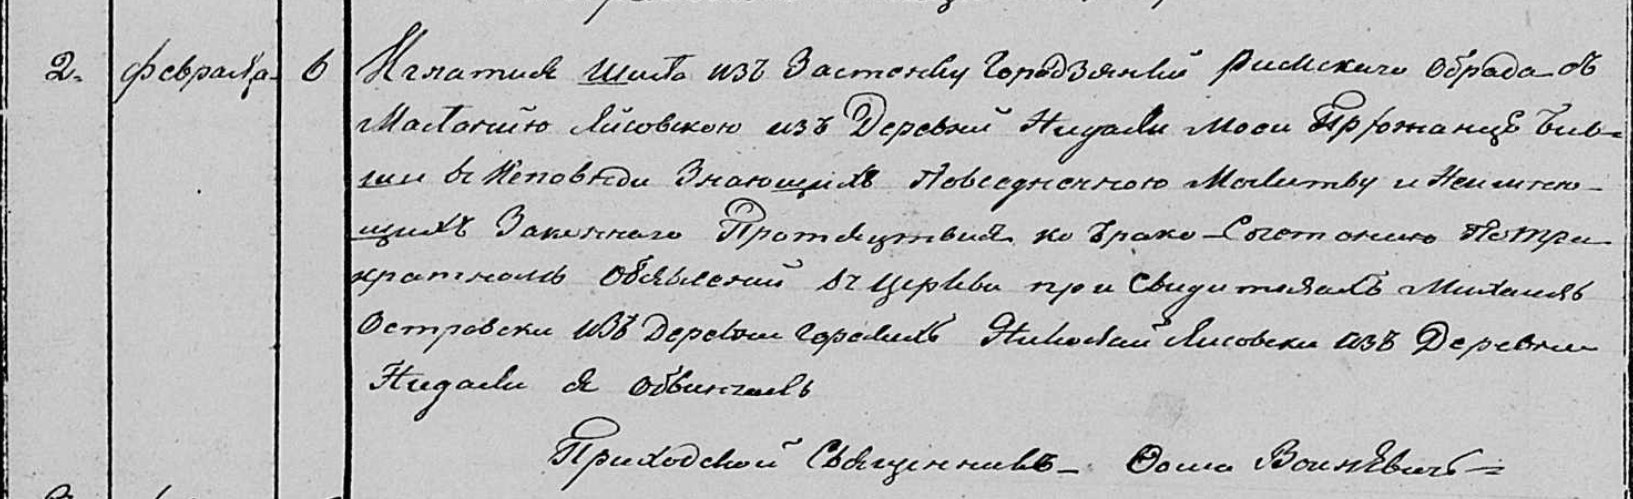 2. февраля 6 Игнатия Шита из Застенку Городзянки Римскаго Обрада об
Малонию Лисовскою изъ Деревни Нидали Мои Прхожанце Бив=
ши в Исповѣди Знающихъ Повседненною Молитву и Неимѣю-
щихъ Законнаго Протяцтвия ко Брако-Сочетонию По тре
кратномъ Обявлений въ церкви при Свидителахъ Михаилъ
Островски изъ Деревни Николай Лисовски изъ Деревни
Нидали я Обвинчалъ
Приходской Священникъ- Воинѣвичъ=